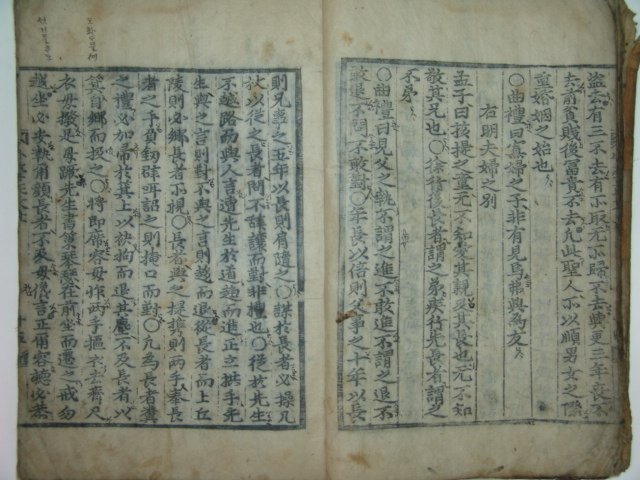 盜去有三不去有所取无所歸不去與更三年喪不
去前貧賤後富貴不去凡此聖人所以順男女之際
重婚姻之始也
○曲禮曰寡婦之子非有見焉弗與爲友
右明夫婦之別
孟子曰孩提之童无不知愛其親及其長也无不知
敬其兄也○徐行後長者謂之弟疾行先長者謂之
不弟
○曲禮曰見父之執不謂之進不敢進不謂之退不
敢退不問不敢對○年長以倍則父事之十年以長
則兄事之五年以長則肩隨之○謀於長者必操几
杖以從之長者問不辭讓而對非禮也○從於先生
不越路而與人言遭先生於道趨而進正立拱手先
生與之言則對不與之言則趨而退從長者而上丘
陵則必鄕長者所視○長者與之提携則兩手奉長
者之手負劒辟咡詔之則掩口而對○凡爲長者糞
之禮必加帚於箕上以袂拘而退其塵不及長者以
箕自鄕而扱之○將即席容毋怍兩手摳衣去齊尺
衣毋撥足毋蹶先生書策琴瑟在前坐而遷之戒勿
越坐必安執爾顔長者不及毋儳言正爾容聽必恭